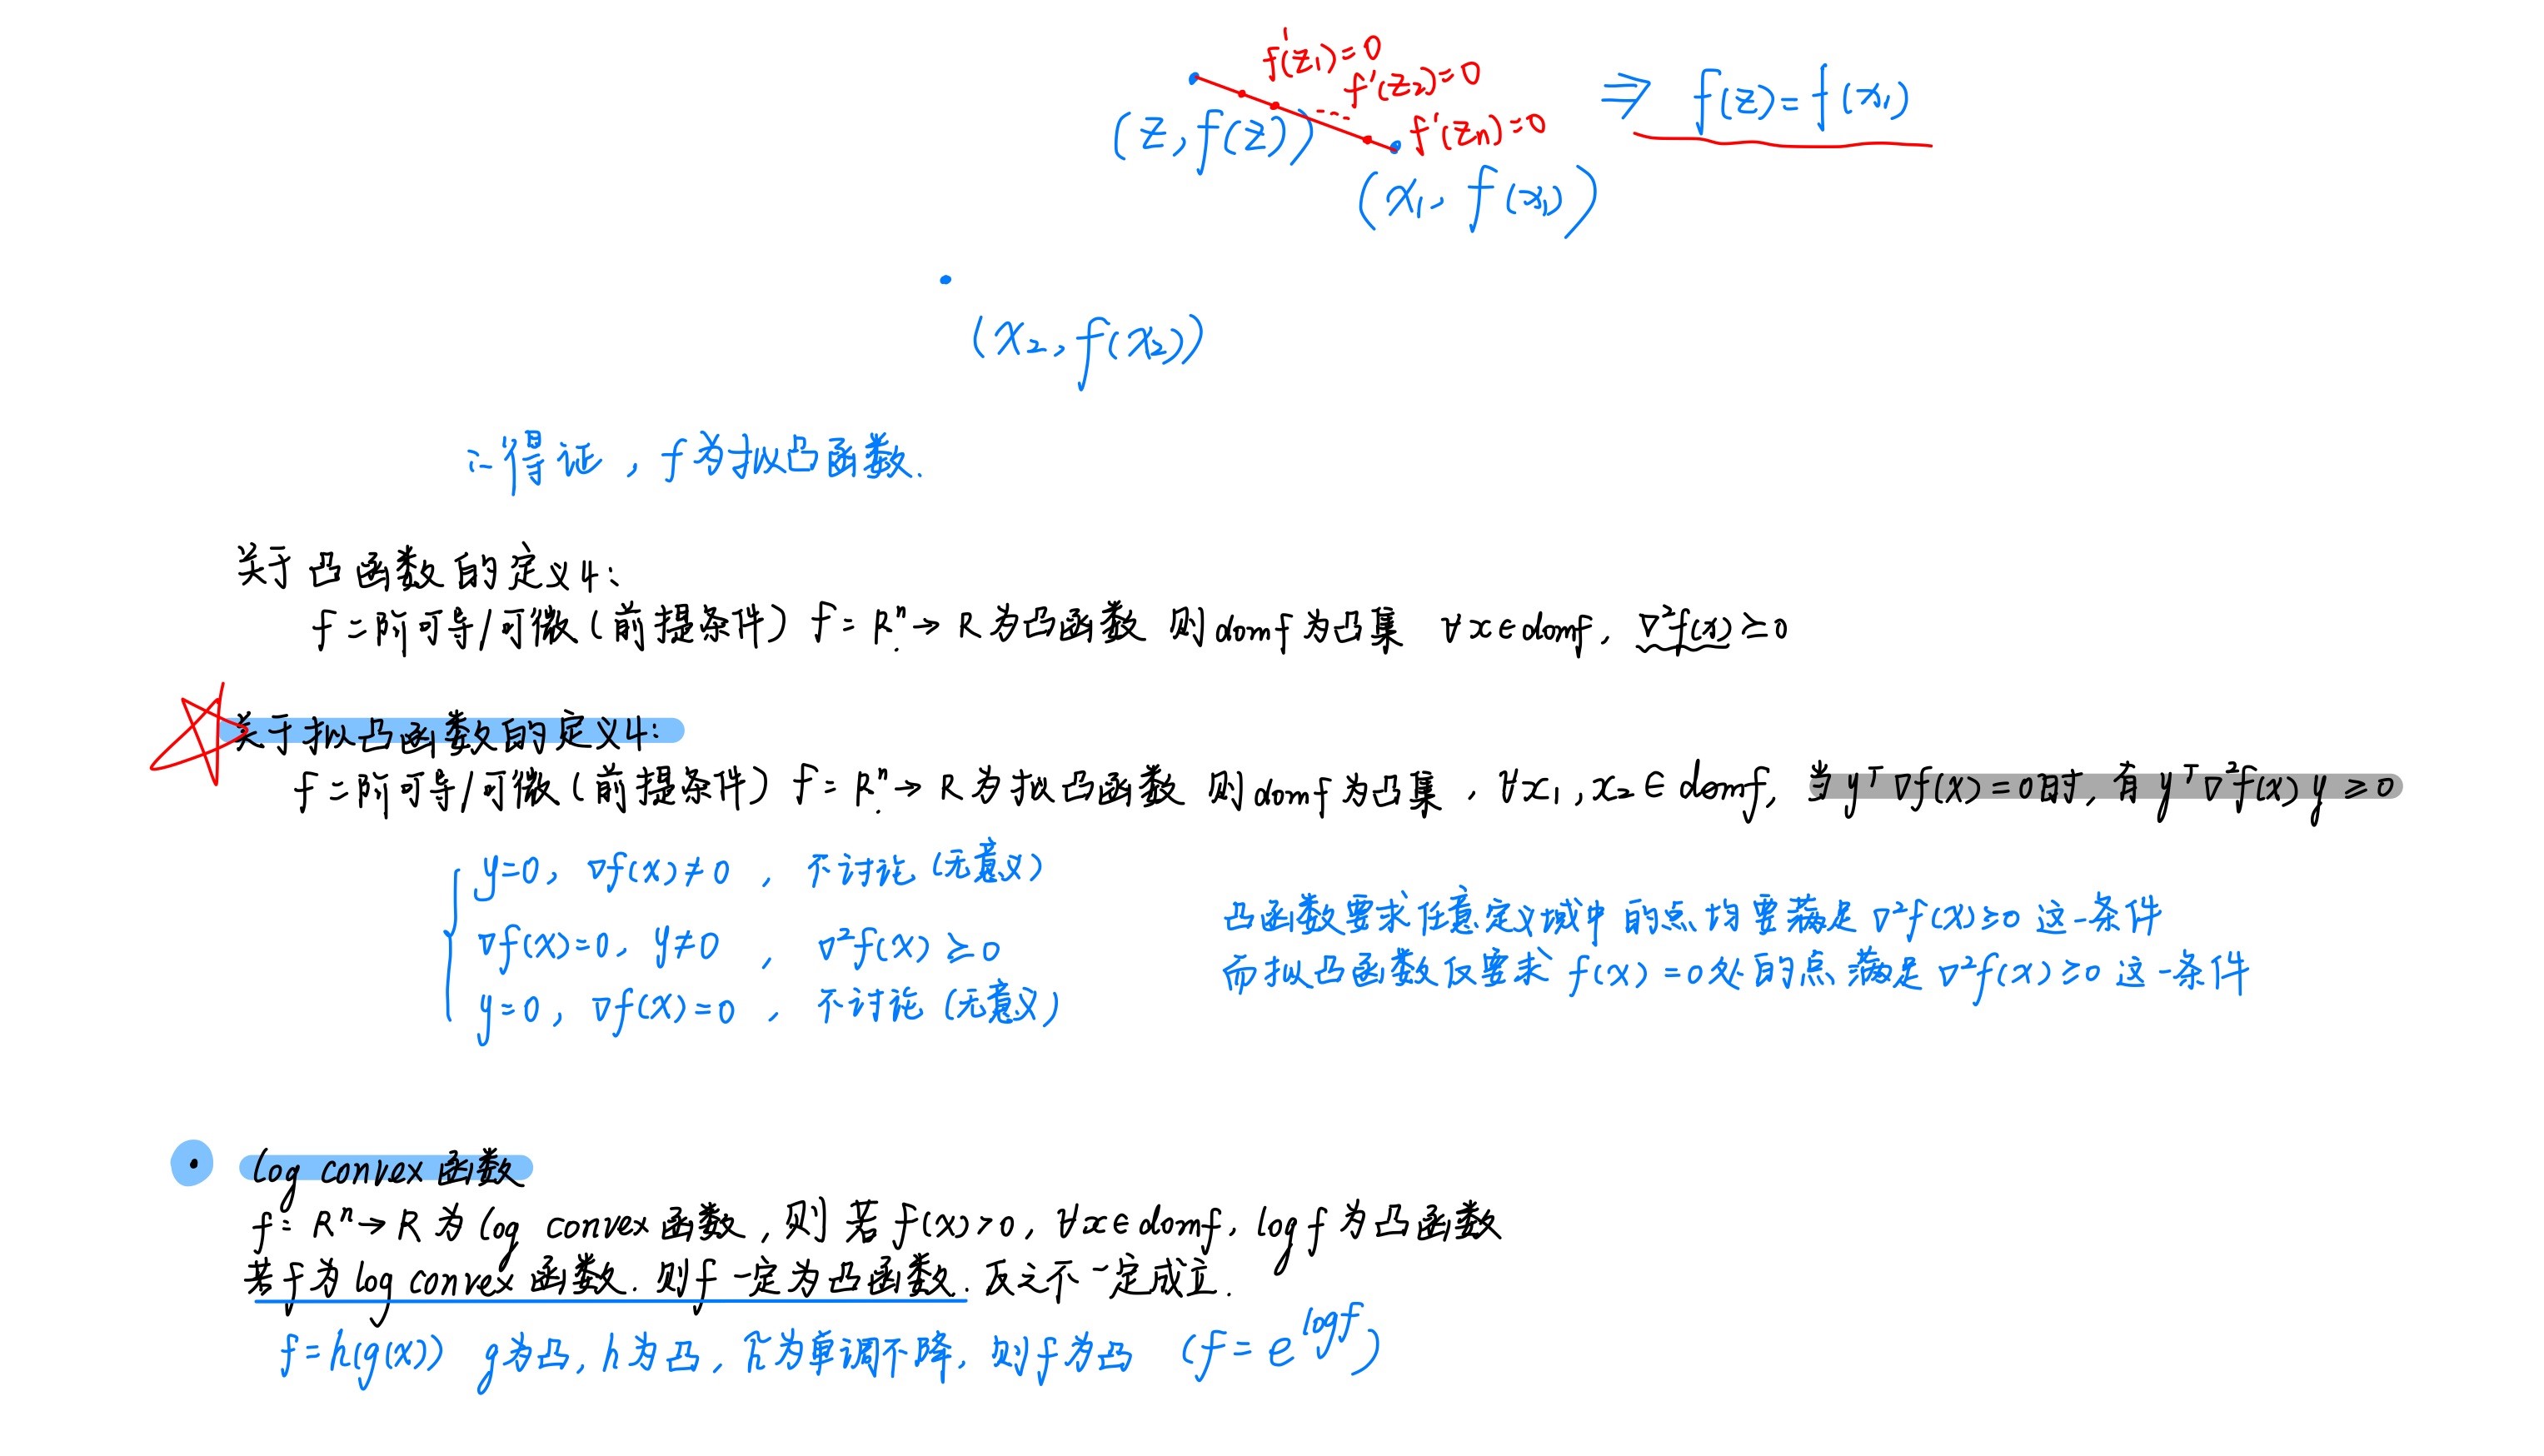 f'(z₁)=0
f'(z₂)=0
f'(zₙ)=0
(z, f(z))
(x₁, f(x₁))
⇒ f(z)=f(x₁)
(x₂, f(x₂))
∴得证，f为拟凸函数.
关于凸函数的定义4：
f二阶可导/可微(前提条件) f: Rⁿ→R为凸函数 则domf为凸集 ∀x∈domf, ∇²f(x)≥0
关于拟凸函数的定义4：
f二阶可导/可微(前提条件) f: Rⁿ→R为拟凸函数 则domf为凸集, ∀x₁,x₂∈domf, 当yᵀ∇f(x)=0时, 有yᵀ∇²f(x)y≥0
y=0, ∇f(x)≠0, 不讨论(无意义)
∇f(x)=0, y≠0, ∇²f(x)≥0
y=0, ∇f(x)=0, 不讨论(无意义)
凸函数要求任意定义域中的点均要满足∇²f(x)≥0这一条件
而拟凸函数仅要求f(x)=0处的点满足∇²f(x)≥0这一条件
• log convex函数
f: Rⁿ→R为log convex函数, 则若f(x)>0, ∀x∈domf, logf为凸函数
若f为log convex函数. 则f一定为凸函数. 反之不一定成立.
f=h(g(x)) g为凸, h为凸, h̃为单调不降, 则f为凸 (f=e^{logf})